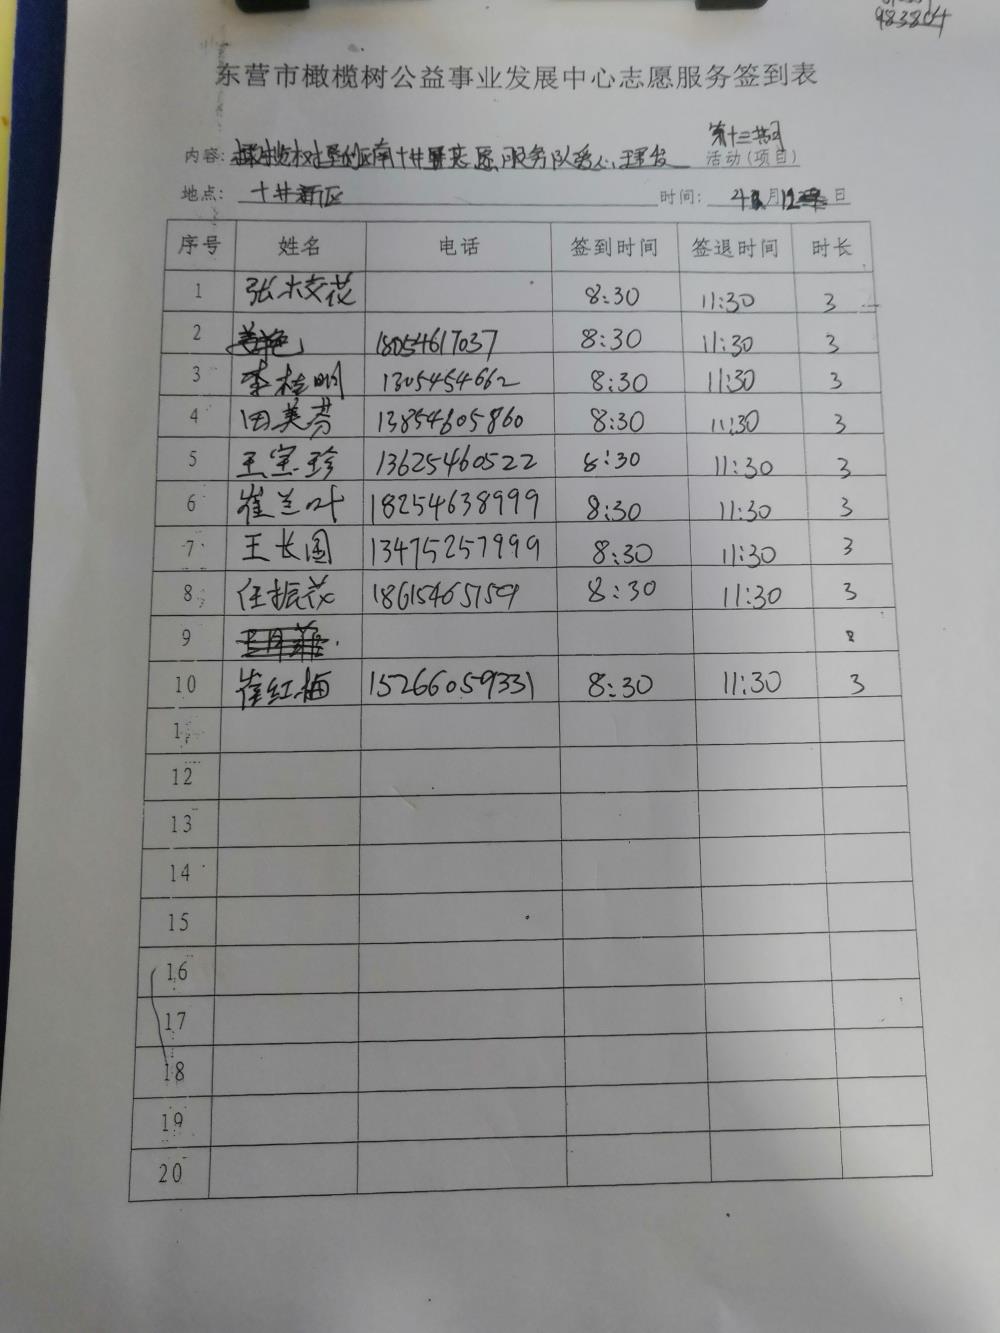 983804
东营市橄榄树公益事业发展中心志愿服务签到表
第十三期
内容: 南十井 志愿服务队爱心 活动(项目)
地点: 十井新区 时间: 4月12日
序号 姓名 电话 签到时间 签退时间 时长
1 张木交花 8:30 11:30 3
2 18054617037 8:30 11:30 3
3 李桂明 1305454662 8:30 11:30 3
4 田美芬 13854605860 8:30 11:30 3
5 王宝珍 13625460522 8:30 11:30 3
6 崔兰叶 18254638999 8:30 11:30 3
7 王长国 13475257999 8:30 11:30 3
8 任振花 18615465159 8:30 11:30 3
9
10 崔红梅 15266059331 8:30 11:30 3
1
12
13
14
15
16
17
18
19
20